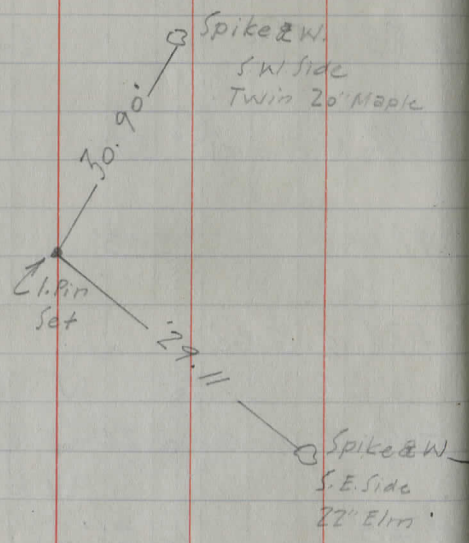 Spike & W.
S W. Side
Twin 20" Maple
30.90'
I. Pin
Set
29.11'
Spike & W
S. E. Side
22" Elm